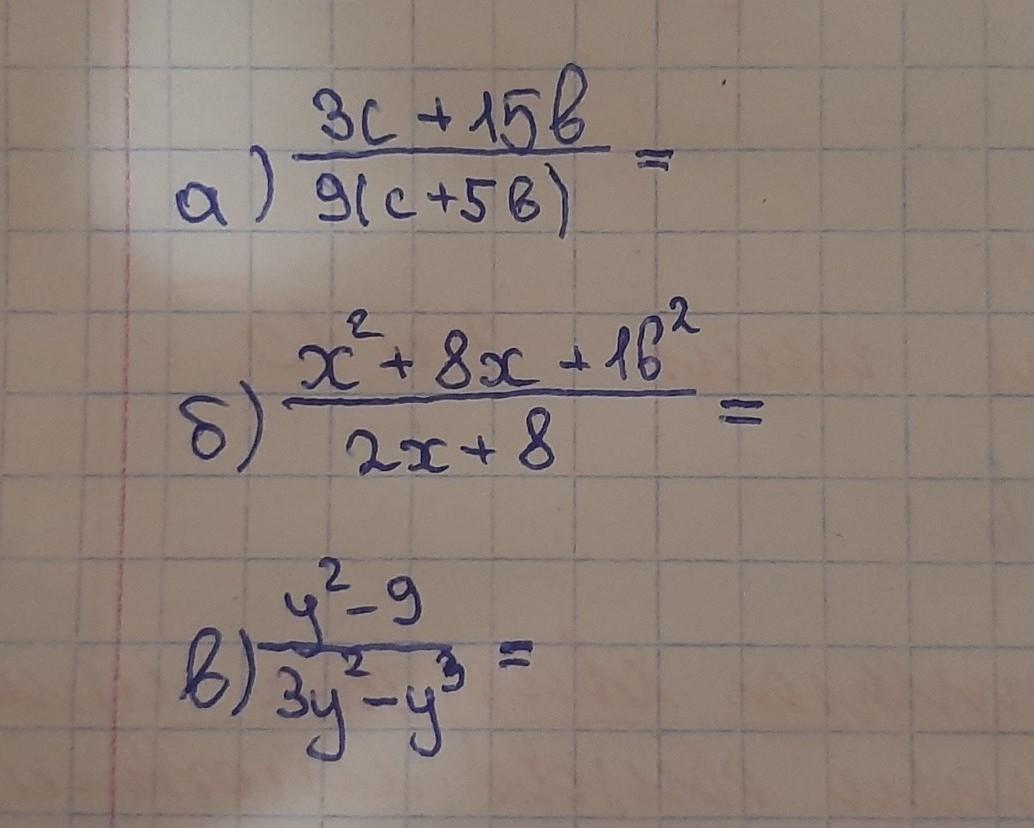 а) (3c + 15b)/(9(c + 5b)) =
б) (x² + 8x + 16²)/(2x + 8) =
в) (y² - 9)/(3y² - y³) =